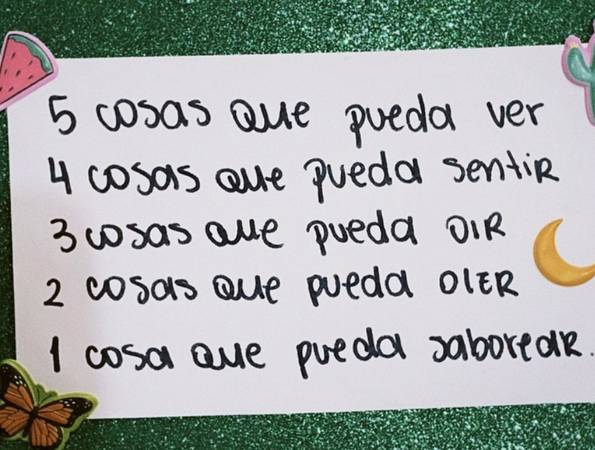 5 cosas que pueda ver
4 cosas que pueda sentir
3 cosas que pueda OIR
2 cosas que pueda OlER
1 cosa que pueda saborear.